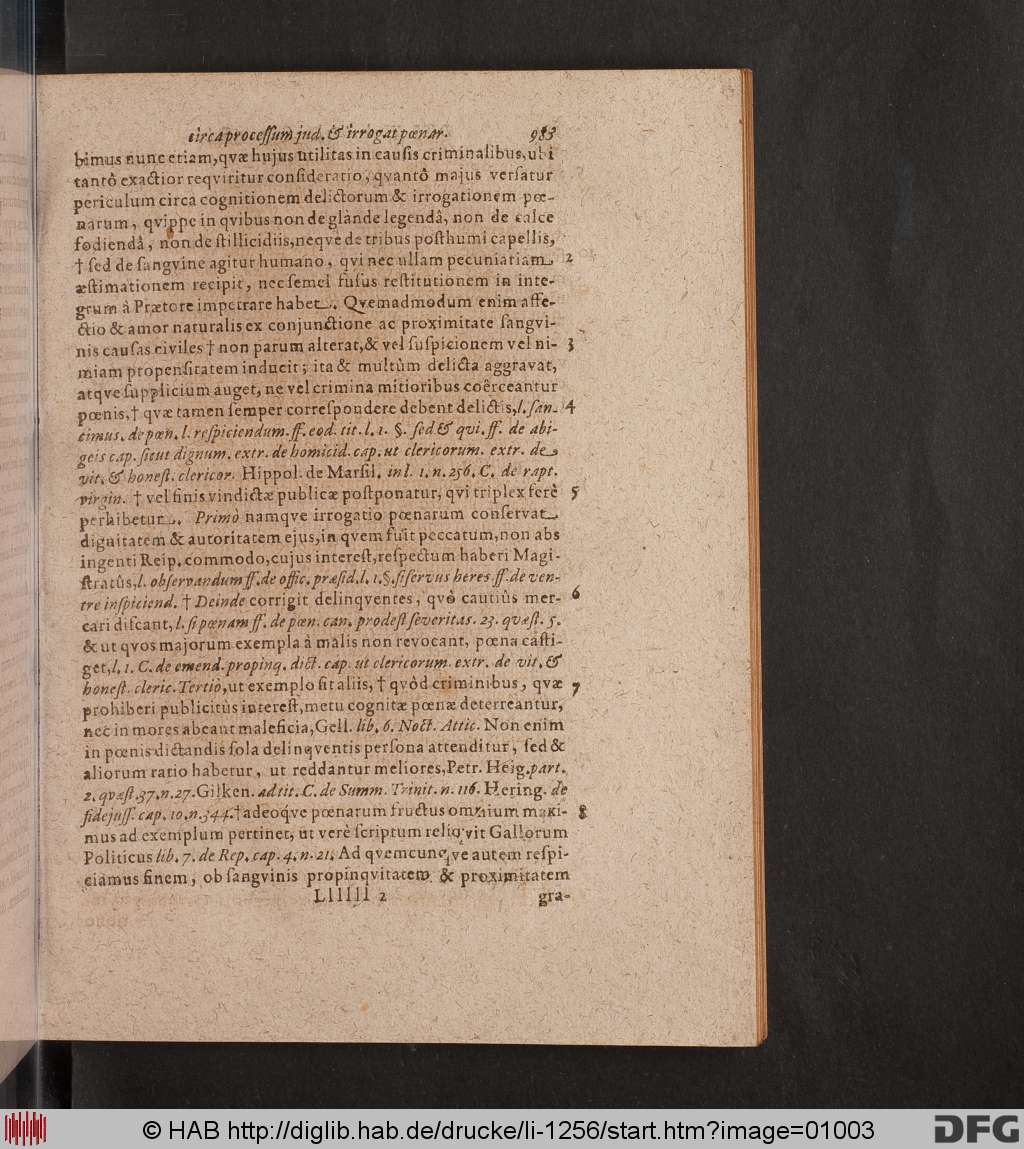 circa processum jud. & irrogat pœnar. 983
bimus nunc etiam, qvæ hujus utilitas in causis criminalibus, ubi
tantò exactior reqviritur consideratio, qvantò majus versatur
periculum circa cognitionem delictorum & irrogationem pœ-
narum, qvippe in qvibus non de glande legendâ, non de calce
fodiendâ, non de stillicidiis, neqve de tribus posthumi capellis,
† sed de sangvine agitur humano, qvi nec ullam pecuniariam 2
æstimationem recipit, nec semel fusus restitutionem in inte-
grum â Prætore impetrare habet. Qvemadmodum enim affe-
ctio & amor naturalis ex conjunctione ac proximitate sangvi-
nis causas civiles † non parum alterat, & vel suspicionem vel ni- 3
miam propensitatem inducit; ita & multùm delicta aggravat,
atqve supplicium auget, ne vel crimina mitioribus coêrceantur
pœnis, † qvæ tamen semper correspondere debent delictis, l. san- 4
cimus. de pœn. l. respiciendum. ff. eod. tit. l. 1. §. sed & qvi. ff. de abi-
geis cap. sicut dignum. extr. de homicid. cap. ut clericorum. extr. de
vit. & honest. clericor. Hippol. de Marsil. in l. 1. n. 256. C. de rapt.
virgin. † vel finis vindictæ publicæ postponatur, qvi triplex ferè 5
perhibetur. Primò namqve irrogatio pœnarum conservat
dignitatem & autoritatem ejus, in qvem fuit peccatum, non abs
ingenti Reip. commodo, cujus interest, respectum haberi Magi-
stratûs, l. observandum ff. de offic. præsid. l. 1. §. si servus heres ff. de ven-
tre inspiciend. † Deinde corrigit delinqventes, qvò cautiùs mer- 6
cari discant, l. si pœnam ff. de pœn. can. prodest severitas. 23. qvæst. 5.
& ut qvos majorum exempla â malis non revocant, pœna casti-
get, l. 1. C. de emend. propinq. dict. cap. ut clericorum. extr. de vit. &
honest. cleric. Tertiò, ut exemplo sit aliis, † qvòd criminibus, qvæ 7
prohiberi publicitùs interest, metu cognitæ pœnæ deterreantur,
nec in mores abeant maleficia, Gell. lib. 6. Noct. Attic. Non enim
in pœnis dictandis sola delinqventis persona attenditur, sed &
aliorum ratio habetur, ut reddantur meliores, Petr. Heig. part.
2. qvæst. 37. n. 27. Gilken. ad tit. C. de Summ. Trinit. n. 116. Hering. de
fidejuss. cap. 10. n. 344. † adeoqve pœnarum fructus omnium maxi- 8
mus ad exemplum pertinet, ut verè scriptum reliqvit Gallorum
Politicus lib. 7. de Rep. cap. 4. n. 21. Ad qvemcunqve autem respi-
ciamus finem, ob sangvinis propinqvitatem & proximitatem
Llllll 2 gra-
© HAB http://diglib.hab.de/drucke/li-1256/start.htm?image=01003 DFG